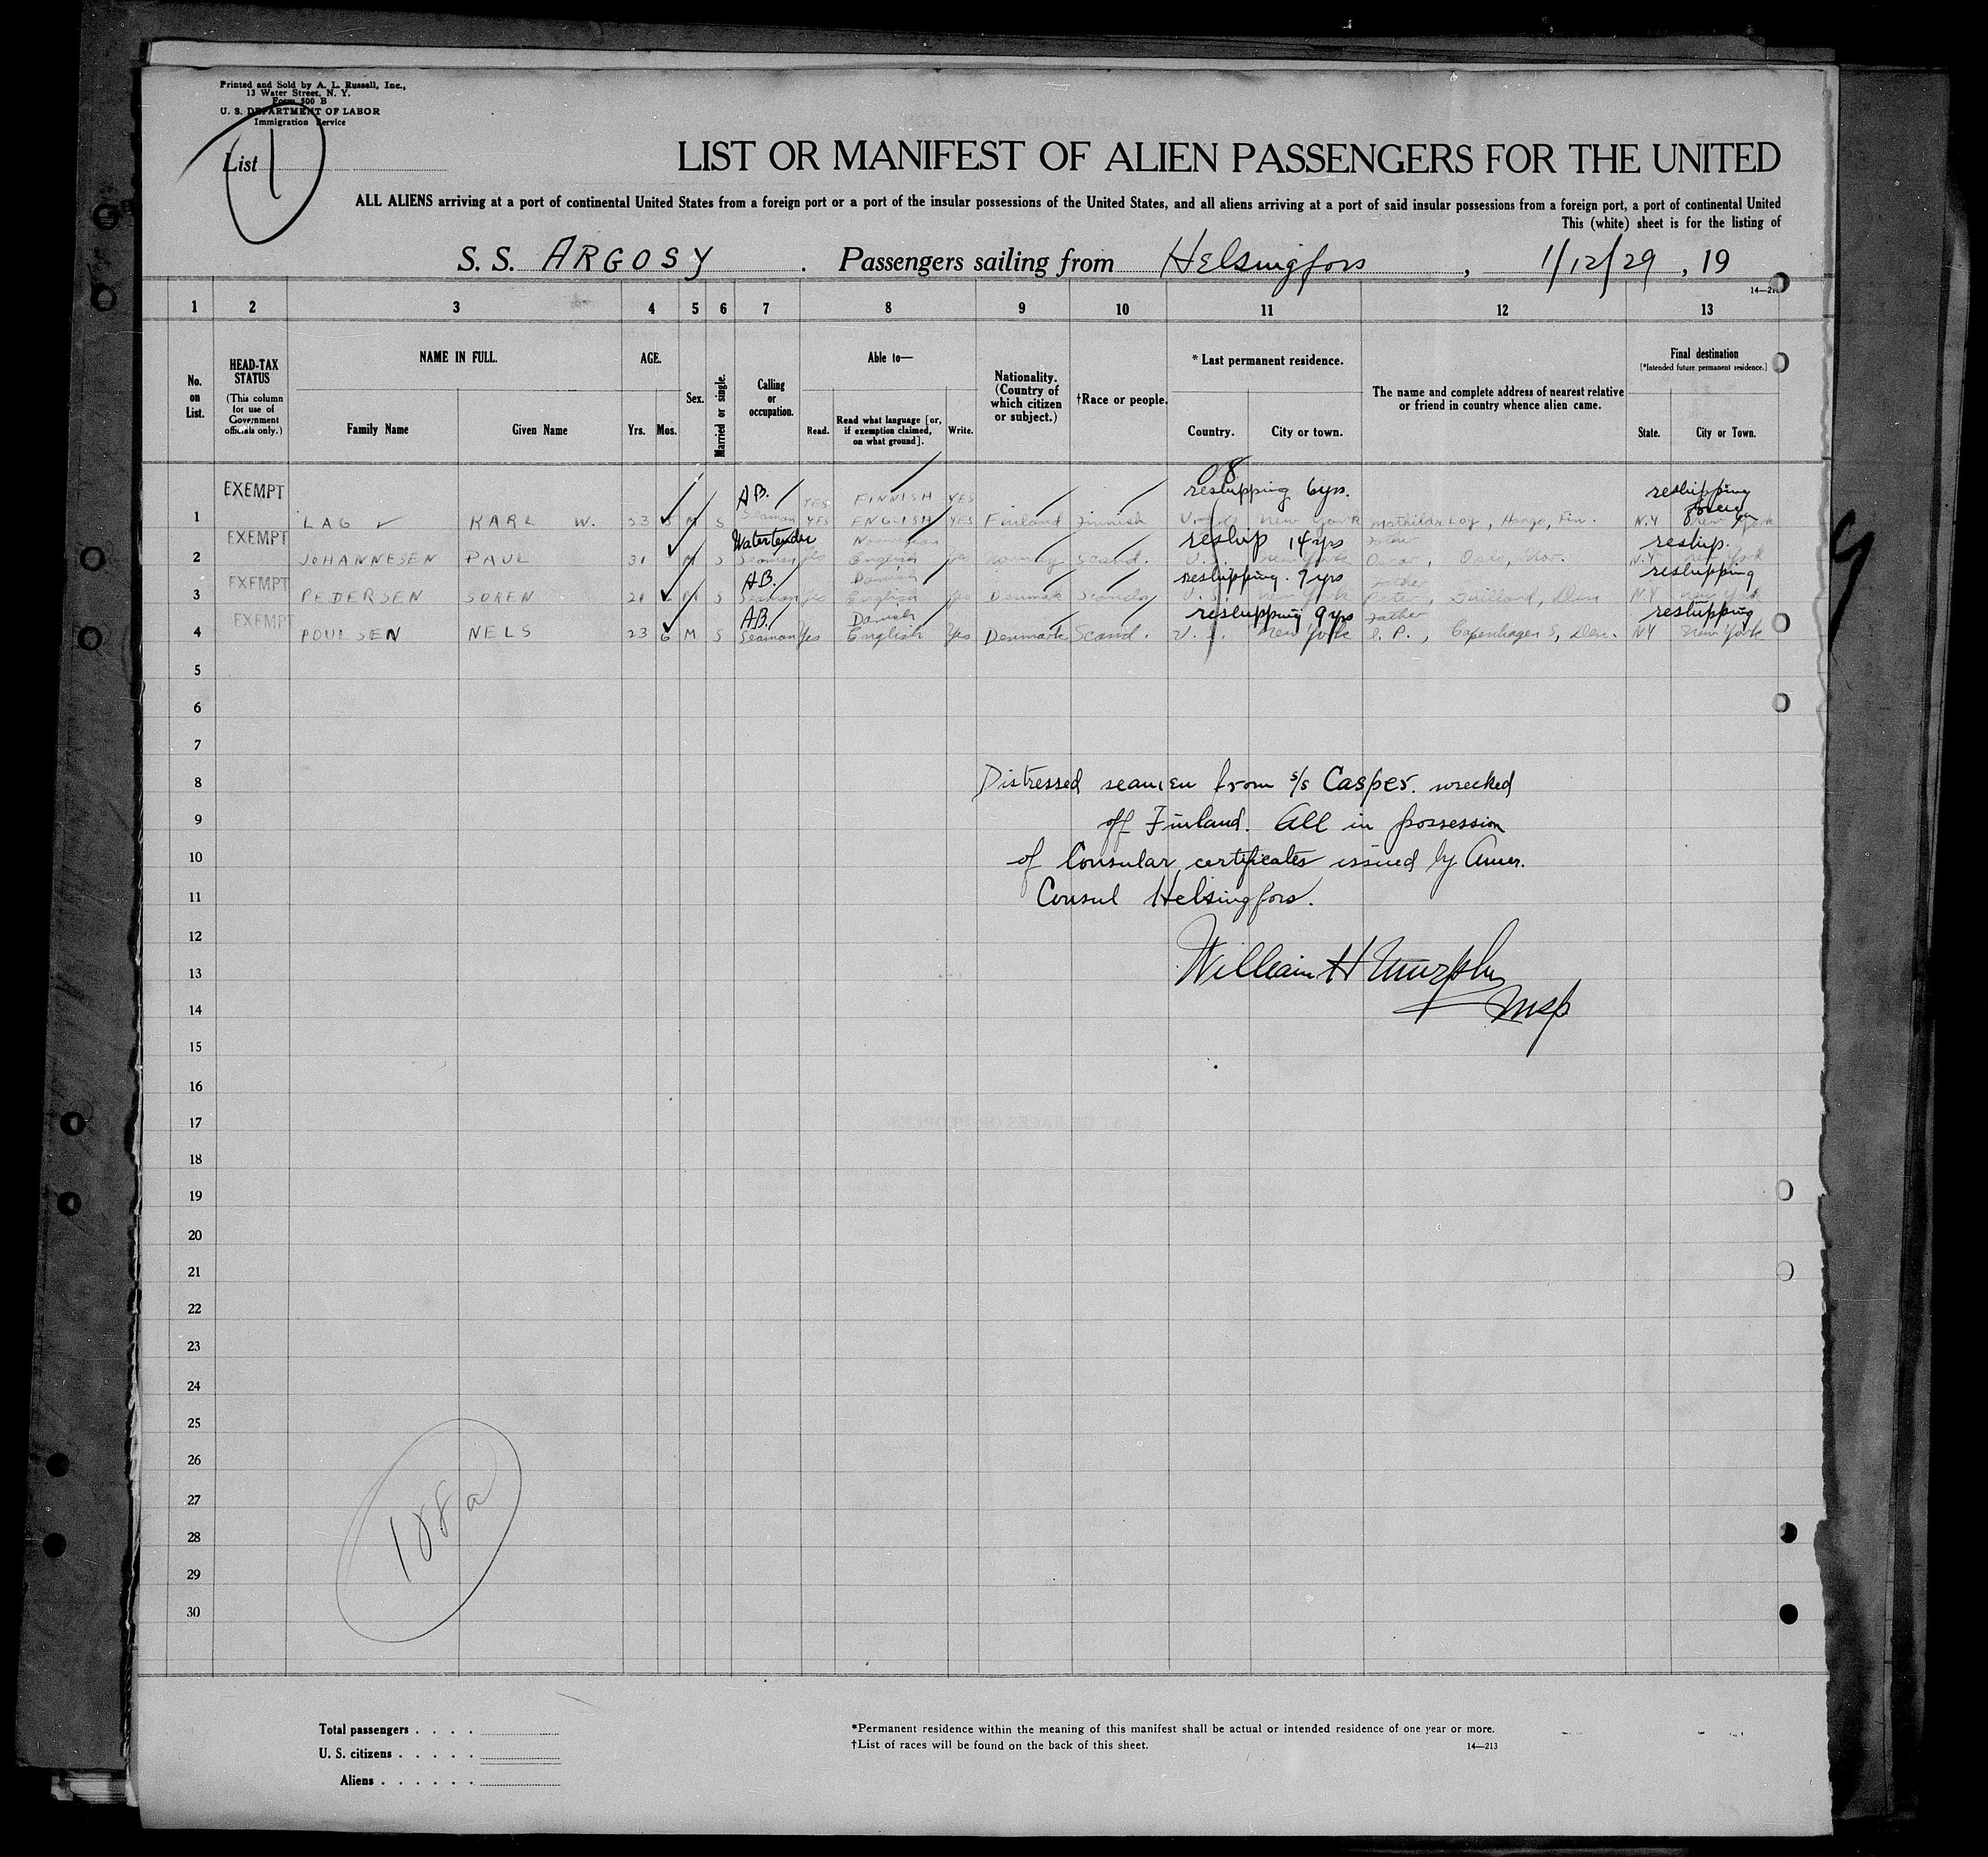 Printed and Sold by A. L. Russell, Inc.,
13 Water Street, N. Y.
Form 500 B
U. S. DEPARTMENT OF LABOR
Immigration Service
List 1
LIST OR MANIFEST OF ALIEN PASSENGERS FOR THE UNITED
ALL ALIENS arriving at a port of continental United States from a foreign port or a port of the insular possessions of the United States, and all aliens arriving at a port of said insular possessions from a foreign port, a port of continental United
This (white) sheet is for the listing of
S. S. ARGOSY . Passengers sailing from Helsingfors , 1/12/29 , 19
1 2 3 4 5 6 7 8 9 10 11 12 13
No. on List.
HEAD-TAX STATUS
(This column for use of Government officials only.)
NAME IN FULL.
Family Name
Given Name
AGE.
Yrs.
Mos.
Sex.
Married or single.
Calling or occupation.
Able to—
Read.
Read what language [or, if exemption claimed, on what ground].
Write.
Nationality. (Country of which citizen or subject.)
†Race or people.
* Last permanent residence.
Country.
City or town.
The name and complete address of nearest relative or friend in country whence alien came.
Final destination
[*Intended future permanent residence.]
State.
City or Town.
EXEMPT A.B. YES FINNISH YES reshipping 6yrs. reshipping
1 LAG KARL W. 23 M S Seaman YES ENGLISH YES Finland Finnish New York Mathilda Hango, Fin. N.Y New York
EXEMPT Watertender Norwegian reship 14 yrs Father reship.
2 JOHANNESEN PAUL 31 M S Seaman Yes English Yes Norway Scand. U.S. New York Oscar, Oslo, Nor. N.Y. New York
EXEMPT A.B. Danish reshipping. 9 yrs Father reshipping
3 PEDERSEN SOREN 21 M S Seaman Yes English Yes Denmark U.S. New York Peter, Den N.Y New York
EXEMPT A.B. Danish reshipping 9 yrs Father reshipping
4 POULSEN NELS 23 6 M S Seaman Yes English Yes Denmark Scand. U.S. New York Copenhagen S, Den. NY New York
5
6
7
8 Distressed seamen from s/s Casper. wrecked
9 off Finland. All in possession
10 of Consular certificates issued by Amer.
11 Consul Helsingfors.
12
13 William H Murphy
14
15
16
17
18
19
20
21
22
23
24
25
26
27
28
29
30
108 a
Total passengers . . . .
U. S. citizens . . . . .
Aliens . . . . . .
*Permanent residence within the meaning of this manifest shall be actual or intended residence of one year or more.
†List of races will be found on the back of this sheet.
14—213